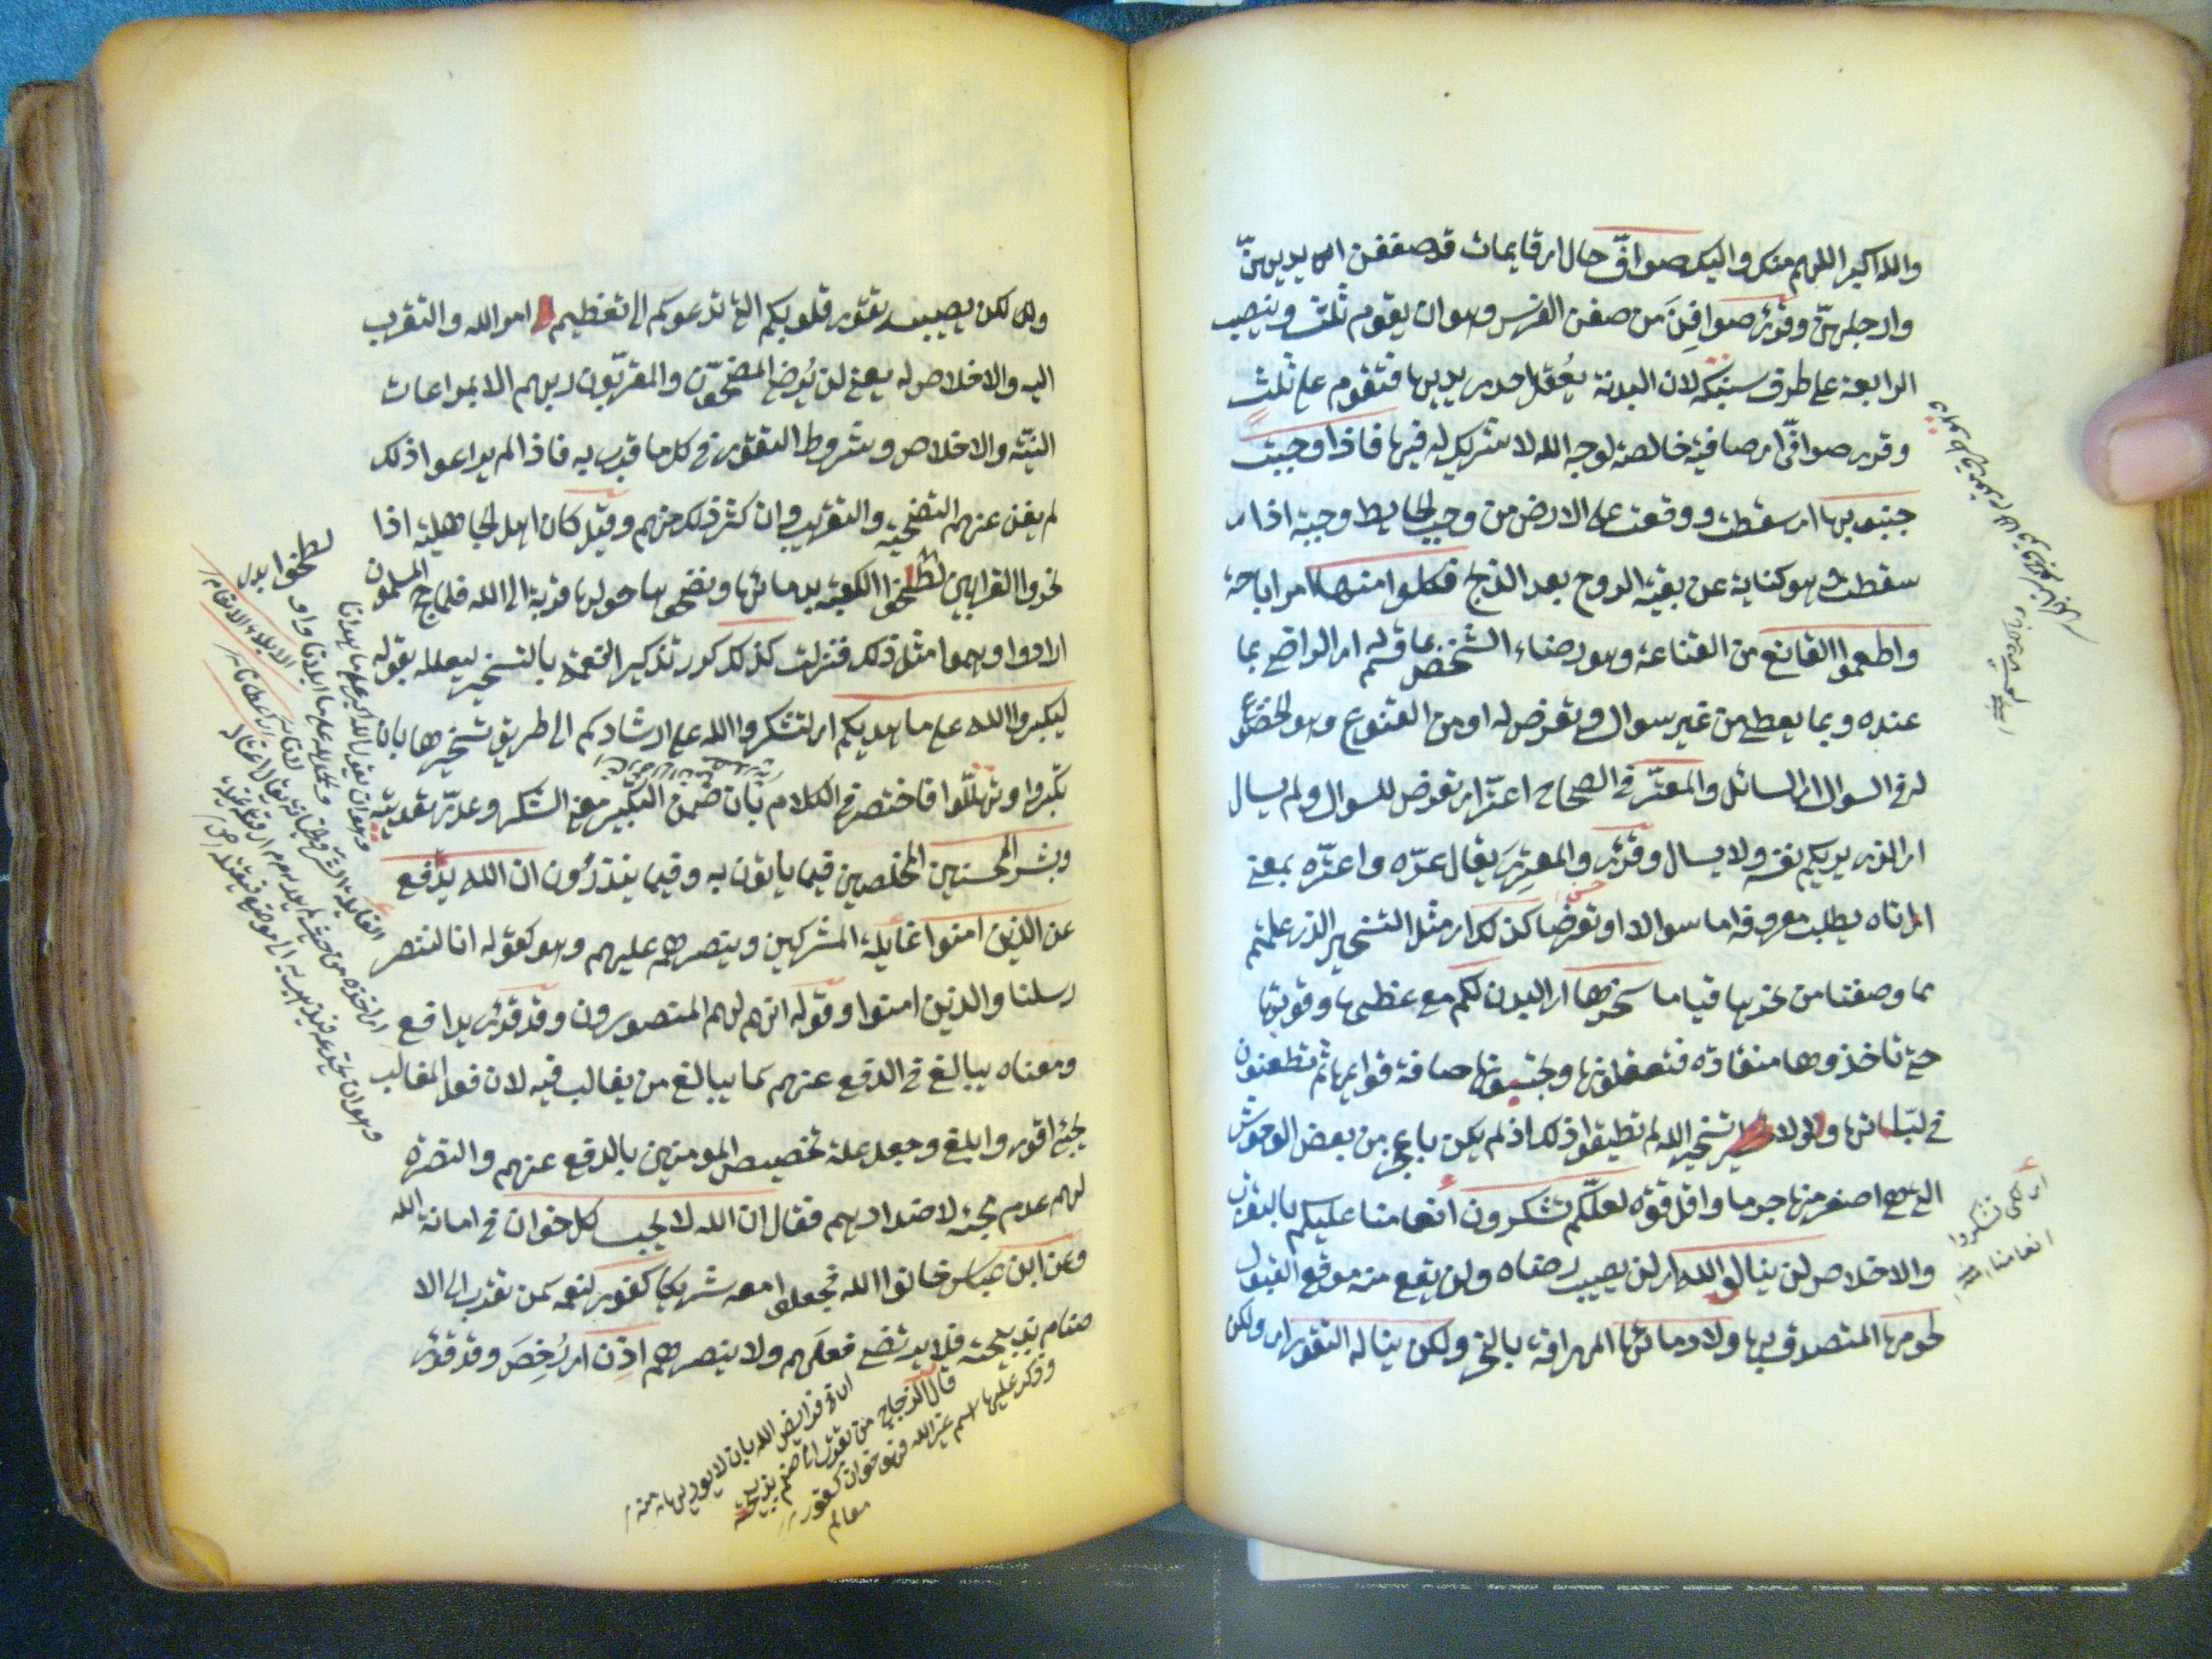 والله اكبر اللهم منك واليك صوافّ حال اى قايمات قد صففن ايديهنّ
وارجلهنّ وقرئ صوافِنَ من صفن الفرس وهو ان يقوم ثلث وينصب
الرابعة على طرف سنبكه لان البدنة يُعقل احدى يديها فتقوم على ثلث
وقرى صوافى اى صافية خالصة لوجه الله لا شريك له فيها فاذا وجبت
جنوبها اى سقطت ووقعت على الارض من وجب الحايط وجبة اذا
سقطت وهو كناية عن بقية الروح بعد الذبح فكلوا منها امر اباحة
واطعموا القانع من القناعة وهو رضاء الشخص بما قسم له اى الراضى بما
عنده وبما يعطى من غير سوال وتعرض له او من القنوع وهو الخضوع
له فى السوال اى السائل والمعترّ فى الصحاح اعترّ اى تعرض للسوال ولم يسال
اى الذى يريكم نفسه ولا يسال وقرئ والمعترِىَ يقال عرّه واعترّه بمعنى
اى اتاه يطلب معروفه اما سوالا او تعرضا كذلك اى مثل التسخير الذى علمتم
بما وصفنا من نحرها قياما سخرنها اى البدن لكم مع عظمها وقوتها
حتى تاخذوها منقادة فتعقلونها وتحبسونها صافة قوايمها ثم تطعنون
فى لبّاتها ولولا تسخير الله لم تطيقوا ذلك اذ لم يكن باعجز من بعض الوحوش
التى هى اصغر منها جرما واقل قوة لعلّكم تشكرون انعامنا عليكم بالتقرب
والاخلاص لن ينال الله اى لن يصيب رضاه ولن يقع منه موقع القبول
لحومها المتصدق بها ولا دمائها المهراقة بالنحر ولكن يناله التقوى اى ولكن
اى لكى تشكروا
انعامنا
ولكن يصيبه تقوى قلوبكم التى تدعوكم الى تعظيم امر الله والتقرب
اليه والاخلاص له يعنى لن يُرضى المضحّون والمقرّبون ربهم الا بمراعات
النيّة والاخلاص وشروط التقوى فى كل ما قرب به فاذا لم يراعوا ذلك
لم يغن عنهم التضحية والتقريب وان كثر ذلك منهم وقيل كان اهل الجاهلية اذا
نحروا القرابين لطخوا الكعبة بدمائها ونضحوها حولها قربة الى الله فلما حج المسلمون
ارادوا وهموا مثل ذلك فنزلت كذلك كرر تذكير النعمة بالتسخير ليعلله بقوله
ليكبروا الله على ما هديكم اى لتشكروا الله على ارشادكم الى طريق تسخيرها بان
تكبروا وتهللوا فاختصر فى الكلام بان ضمن التكبير معنى الشكر وعدّى تعديته
وبشر المحسنين المخلصين فيما ياتون به وفيما يذرُون ان الله يدفع
عن الذين امنوا غايلة المشركين وينصرهم عليهم وهو كقوله انا لننصر
رسلنا والذين امنوا وقوله انهم لهم المنصورون وقد قرئ يدافع
ومعناه يبالغ فى الدفع عنهم كما يبالغ من يغالب فيه لان فعل المغالب
يجئ اقوى وابلغ وجعل علة تخصيص المومنين بالدفع عنهم والنصرة
لهم عدم محبته لاضدادهم فقال ان الله لا يحب كل خوان فى امانة الله
وعن ابن عباس خانوا الله فجعلوا معه شريكا كفور لنعمه كمن تقرب الى الا
صنام بذبيحته فلا يرتضى فعلهم ولا ينصرهم اذِن اى رُخِصَ وقد قرئ
لطخوا بدل
اى فى فرايض الله بان لا يوديها
قال الزجاج من تقرب الى صنم بذبيحته
وذكر عليها اسم غير الله فهو خوان كفور
معالم